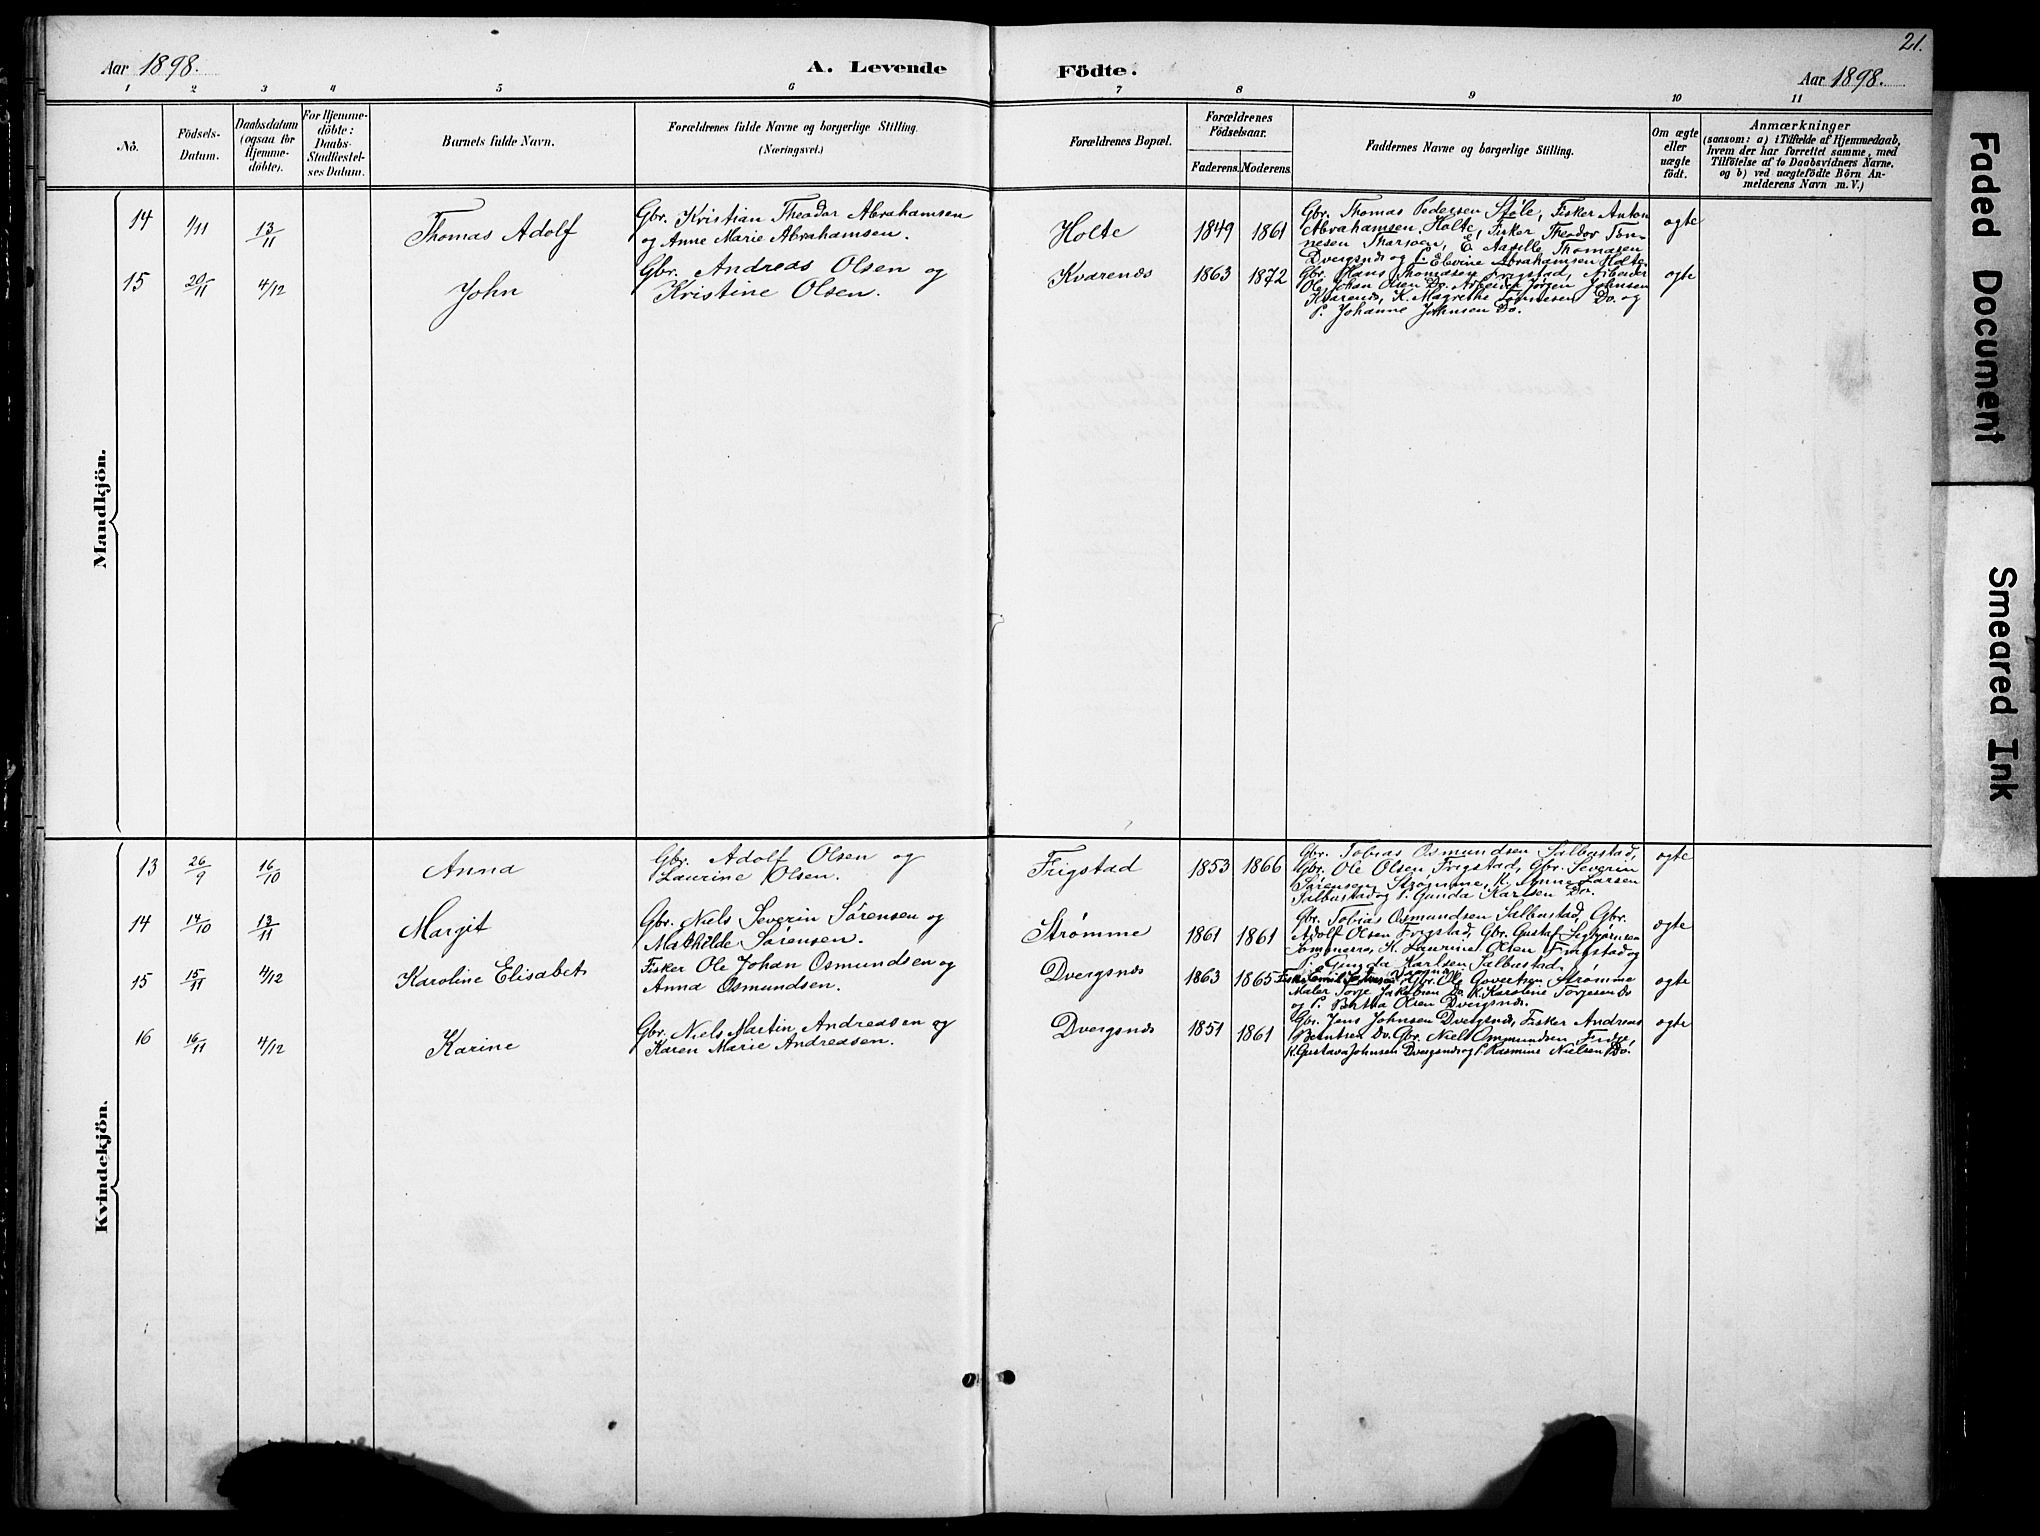 21.
Aar 1898.
A. Levende Födte.
Aar 1898.
1 2 3 4 5 6 7 8 9 10 11
No.
Födsels-
Datum.
Daabsdatum
(ogsaa for
Hjemme-
döbte).
For Hjemme-
döbte:
Daabs-
Stadfestel-
ses Datum.
Barnets fulde Navn.
Forældrenes fulde Navne og borgerlige Stilling.
(Næringsvei.)
Forældrenes Bopæl.
Forældrenes
Födselsaar.
Faderens. Moderens.
Faddernes Navne og borgerlige Stilling.
Om ægte
eller
uægte
født.
Anmærkninger
(saasom: a) i Tilfælde af Hjemmedaab,
hvem der har forrettet samme, med
Tilföielse af to Daabsvidners Navne.
og b) ved uægtefödte Börn An-
melderens Navn m. V.)
Mandkjön.
14 1/11 13/11 Thomas Adolf
Gbr. Kristian Theodor Abrahamsen
og Anne Marie Abrahamsen.
Holte 1849 1861
Gbr. Thomas Pedersen Støle, Fisker Anton
Abrahamsen Holte, Fisker Theodor Tøn-
nesen E. Thomasen
Dvergsnes og P. Elevine Abrahamsen Holte.
ogte
15 20/11 4/12 John
Gbr. Andreas Olsen og
Kristine Olsen.
Kvarenes 1863 1872
Gbr. Hans Thomasen Frigstad, Arbeider
Ole Johan Olsen Do. Arbeider Jørgen Johnsen
Kvarenes, K. Magrethe Tønnesen Do. og
P. Johanne Johnsen Do.
ogte
Kvindekjön.
13 26/9 16/10 Anna
Gbr. Adolf Olsen og
Laurine Olsen.
Frigstad 1853 1866
Gbr. Tobias Osmundsen Salbustad,
Gbr. Ole Olsen Frigstad, Gbr. Severin
Sørensen Strømme, K. Anne Larsen
Salbustad og P. Gunda Karlsen Do.
ogte
14 14/10 13/11 Margit
Gbr. Niels Severin Sørensen og
Mathilde Sørensen.
Strømme 1861 1861
Gbr. Tobias Osmundsen Salbustad, Gbr.
Adolf Olsen Frigstad, Gbr. Gustaf
K. Laurine Olsen Frigstad og
P. Gunda Karlsen Salbustad.
ogte
15 15/11 4/12 Karoline Elisabet
Fisker Ole Johan Osmundsen og
Anna Osmundsen.
Dvergsnes 1863 1865
Fisker Emil Gbr. Ole Govertsen Strømme
Maler Torje Jakobsen Do. K. Karoline Torjesen Do
og P. Bertha Olsen Dvergsnes.
ogte
16 16/11 4/12 Karine
Gbr. Niels Martin Andreasen og
Karen Marie Andreasen.
Dvergsnes 1851 1861
Gbr. Jens Johnsen Dvergsnes, Fisker Andreas
Berntsen Do. Gbr. Niels Ommundsen
K. Gustava Johnsen Dvergsnes og P. Rasmine Nielsen Do.
ogte
Faded Document
Smeared Ink